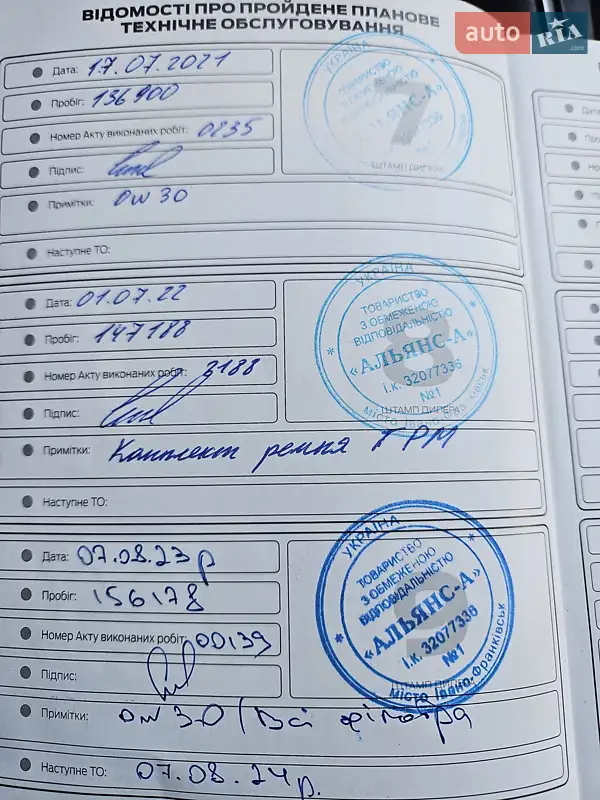 ВІДОМОСТІ ПРО ПРОЙДЕНЕ ПЛАНОВЕ
ТЕХНІЧНЕ ОБСЛУГОВУВАННЯ
auto RIA .com
Дата: 17.07.2021
Пробіг: 136900
Номер Акту виконаних робіт: 0235
Підпис:
Примітки: 0w30
Наступне ТО:
7
ТОВАРИСТВО
З ОБМЕЖЕНОЮ
ВІДПОВІДАЛЬНІСТЮ
«АЛЬЯНС-А»
ШТАМП ДИЛЕРА
Дата: 01.07.22
Пробіг: 147188
Номер Акту виконаних робіт: 3188
Підпис:
Примітки: Комплект ремня ГРМ
Наступне ТО:
8
УКРАЇНА
ТОВАРИСТВО
З ОБМЕЖЕНОЮ
ВІДПОВІДАЛЬНІСТЮ
«АЛЬЯНС-А»
І.К. 32077336
№1
ШТАМП ДИЛЕРА
Дата: 07.08.23р
Пробіг: 156178
Номер Акту виконаних робіт: 00139
Підпис:
Примітки: 0w30/Всі фільтра
Наступне ТО: 07.08.24р.
9
УКРАЇНА
ТОВАРИСТВО
З ОБМЕЖЕНОЮ
ВІДПОВІДАЛЬНІСТЮ
«АЛЬЯНС-А»
І.К. 32077336
№1
місто Івано-Франківськ